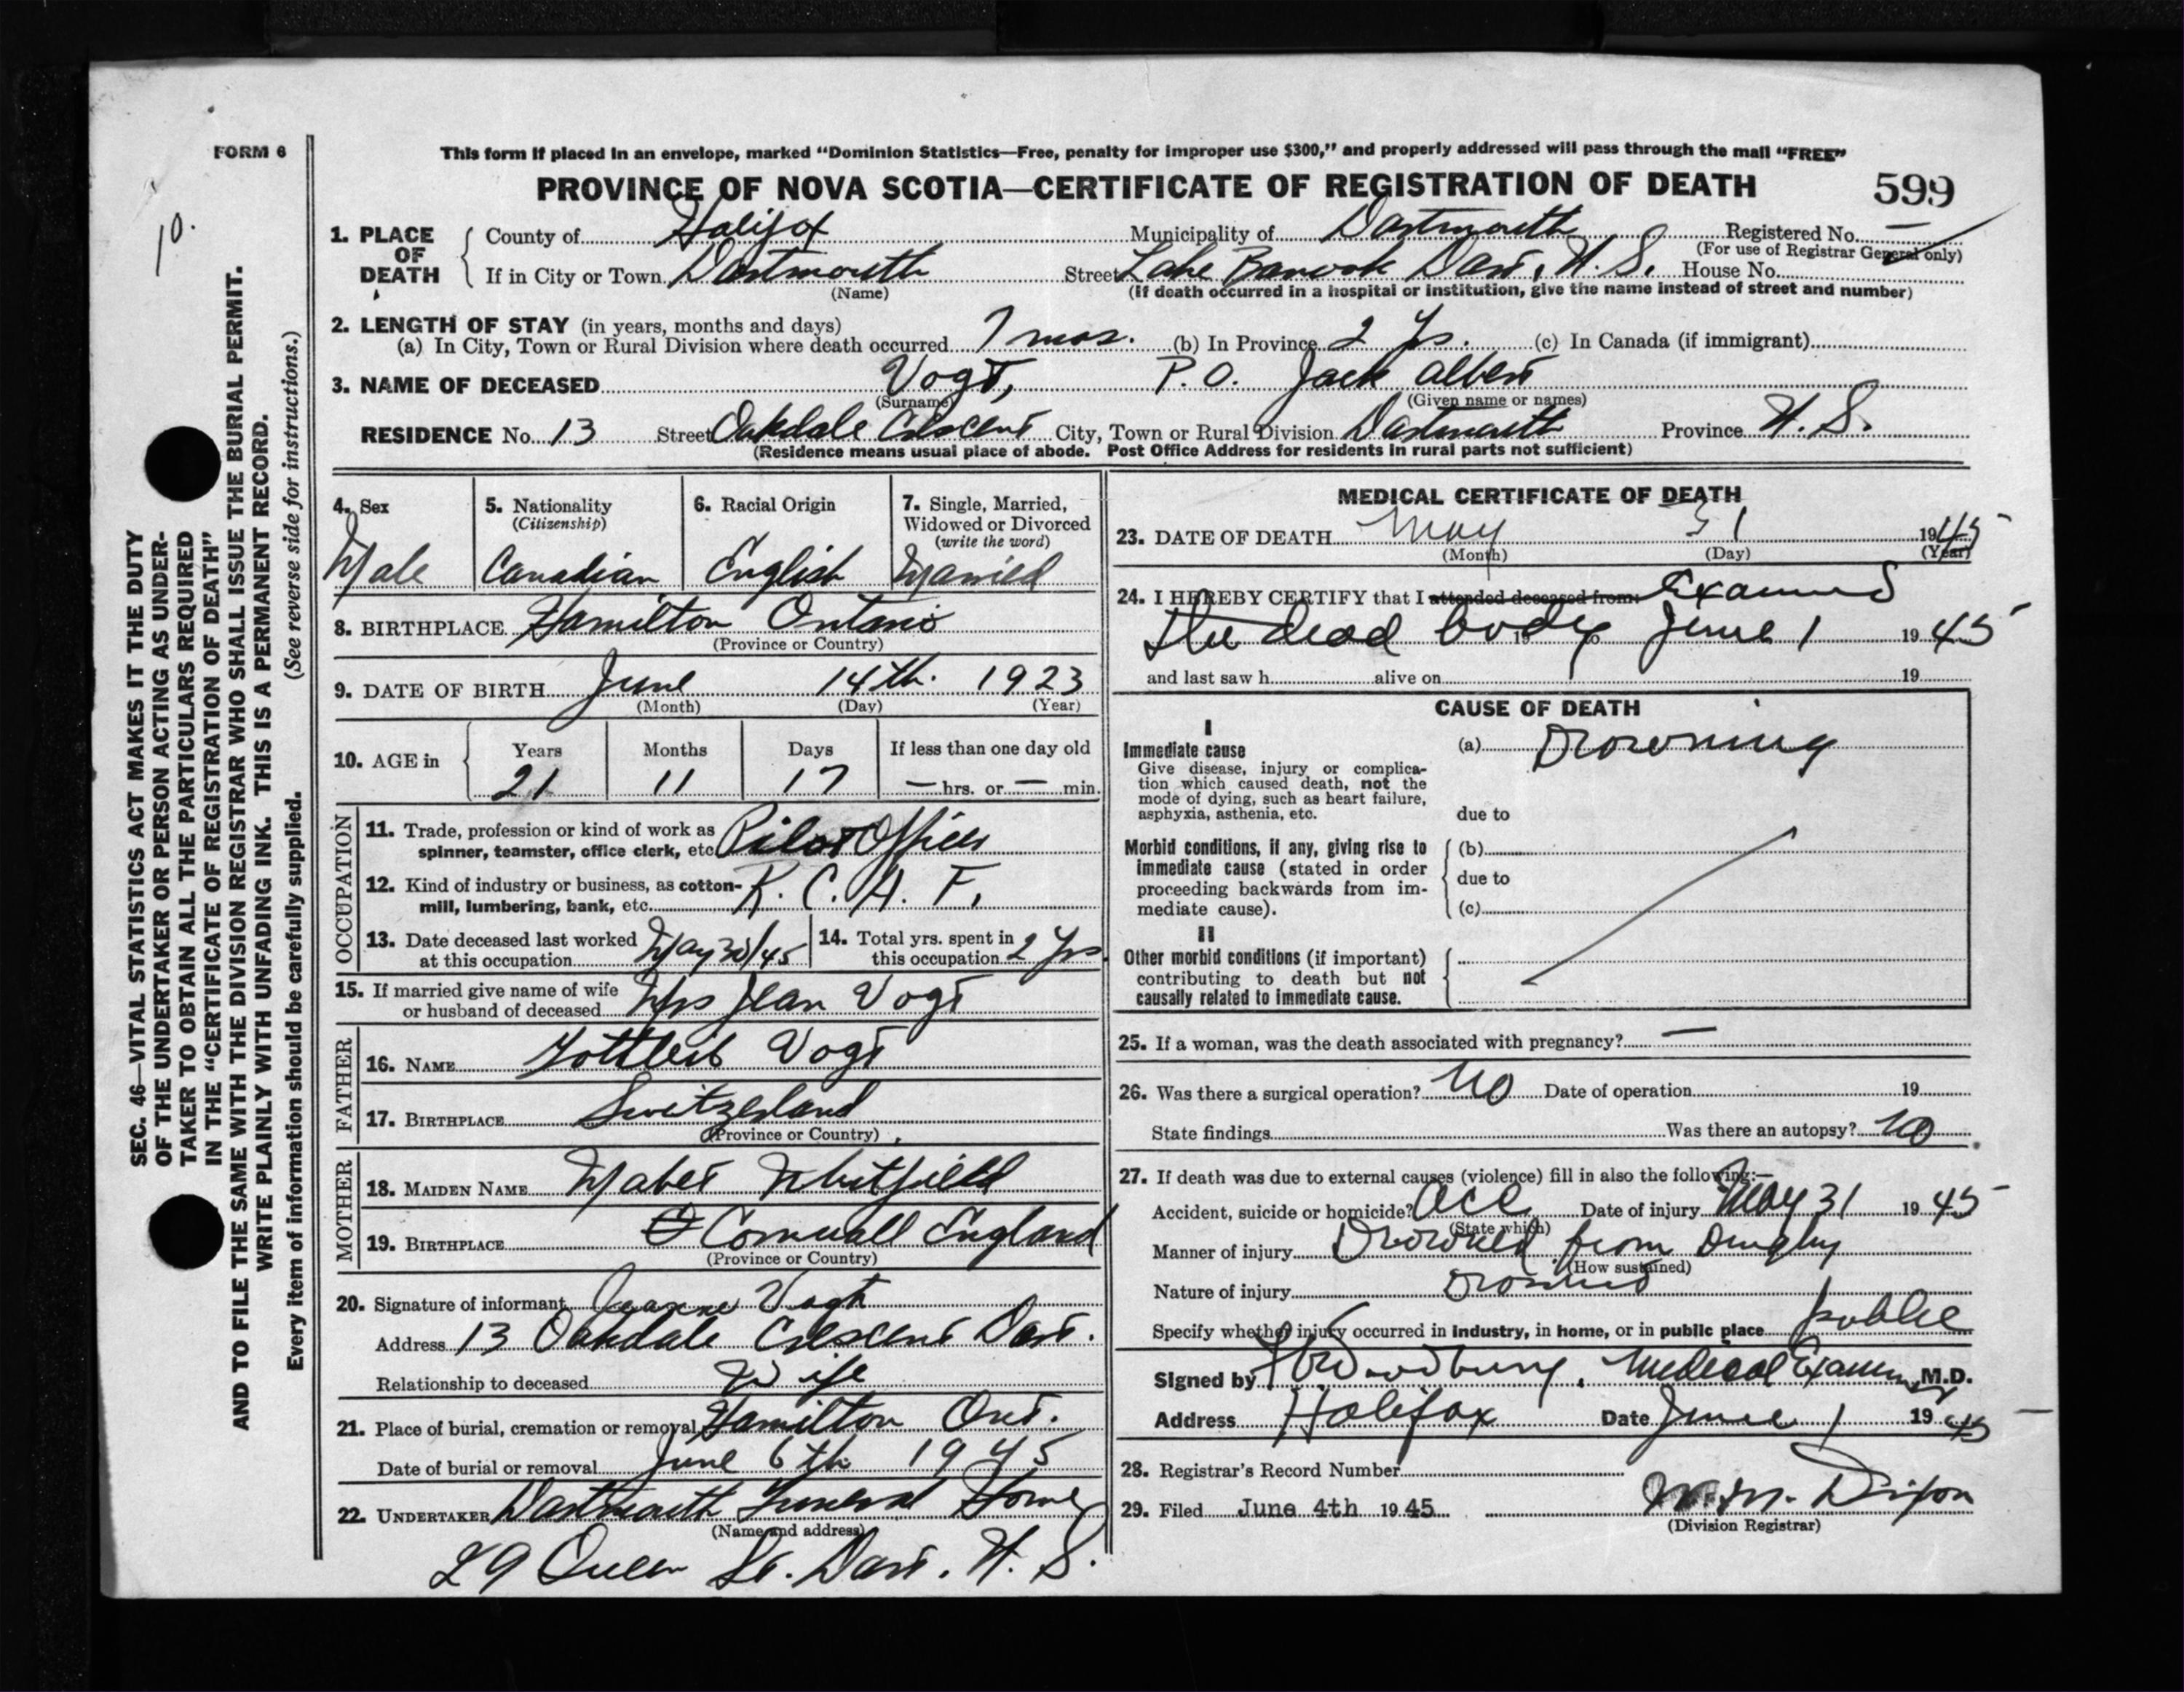 FORM 6
This form if placed in an envelope, marked “Dominion Statistics—Free, penalty for improper use $300,” and properly addressed will pass through the mail “FREE”
PROVINCE OF NOVA SCOTIA—CERTIFICATE OF REGISTRATION OF DEATH 599
10.
1. PLACE OF DEATH
County of Halifax Municipality of Dartmouth Registered No. —
(For use of Registrar General only)
If in City or Town Dartmouth Street Lake Banook Dart. N. S. House No.
(Name) (If death occurred in a hospital or institution, give the name instead of street and number)
2. LENGTH OF STAY (in years, months and days)
(a) In City, Town or Rural Division where death occurred 7 mos. (b) In Province 2 Ys. (c) In Canada (if immigrant)
3. NAME OF DECEASED Vogt, P.O. Jack Albert
(Surname) (Given name or names)
RESIDENCE No. 13 Street Oakdale Crescent City, Town or Rural Division Dartmouth Province N. S.
(Residence means usual place of abode. Post Office Address for residents in rural parts not sufficient)
4. Sex
Male
5. Nationality
(Citizenship)
Canadian
6. Racial Origin
English
7. Single, Married,
Widowed or Divorced
(write the word)
Married
8. BIRTHPLACE Hamilton Ontario
(Province or Country)
9. DATE OF BIRTH June 14th. 1923
(Month) (Day) (Year)
10. AGE in
Years Months Days If less than one day old
21 11 17 — hrs. or — min.
OCCUPATION
11. Trade, profession or kind of work as
spinner, teamster, office clerk, etc. Pilot Officer
12. Kind of industry or business, as cotton-
mill, lumbering, bank, etc. R. C. A. F.
13. Date deceased last worked
at this occupation May 30/45
14. Total yrs. spent in
this occupation 2 Yrs
15. If married give name of wife
or husband of deceased Mrs Jean Vogt
FATHER
16. NAME Gottleib Vogt
17. BIRTHPLACE Switzerland
(Province or Country)
MOTHER
18. MAIDEN NAME Mabel Whitfield
19. BIRTHPLACE Cornwall England
(Province or Country)
20. Signature of informant Jeanne Vogt
Address 13 Oakdale Crescent Dart.
Relationship to deceased Wife
21. Place of burial, cremation or removal Hamilton Ont.
Date of burial or removal June 6th 1945
22. UNDERTAKER Dartmouth Funeral Home
(Name and address)
29 Queen St. Dart. N. S.
MEDICAL CERTIFICATE OF DEATH
23. DATE OF DEATH May 31 1945
(Month) (Day) (Year)
24. I HEREBY CERTIFY that I attended deceased from: Examined
the dead body 19 to June 1 1945
and last saw h alive on 19
CAUSE OF DEATH
I
Immediate cause
Give disease, injury or complica-
tion which caused death, not the
mode of dying, such as heart failure,
asphyxia, asthenia, etc.
(a) Drowning
due to
Morbid conditions, if any, giving rise to
immediate cause (stated in order
proceeding backwards from im-
mediate cause).
(b)
due to
(c)
II
Other morbid conditions (if important)
contributing to death but not
causally related to immediate cause.
25. If a woman, was the death associated with pregnancy? —
26. Was there a surgical operation? No Date of operation 19
State findings Was there an autopsy? No
27. If death was due to external causes (violence) fill in also the following:—
Accident, suicide or homicide? Acc Date of injury May 31 1945
(State which)
Manner of injury Drowned from Dinghy
(How sustained)
Nature of injury Drowned
Specify whether injury occurred in industry, in home, or in public place public
Signed by Woodbury, Medical Examiner M.D.
Address Halifax Date June 1 1945
28. Registrar's Record Number
29. Filed June 4th 1945 M. Dixon
(Division Registrar)
SEC. 46—VITAL STATISTICS ACT MAKES IT THE DUTY
OF THE UNDERTAKER OR PERSON ACTING AS UNDER-
TAKER TO OBTAIN ALL THE PARTICULARS REQUIRED
IN THE “CERTIFICATE OF REGISTRATION OF DEATH”
AND TO FILE THE SAME WITH THE DIVISION REGISTRAR WHO SHALL ISSUE THE BURIAL PERMIT.
WRITE PLAINLY WITH UNFADING INK. THIS IS A PERMANENT RECORD.
Every item of information should be carefully supplied. (See reverse side for instructions.)